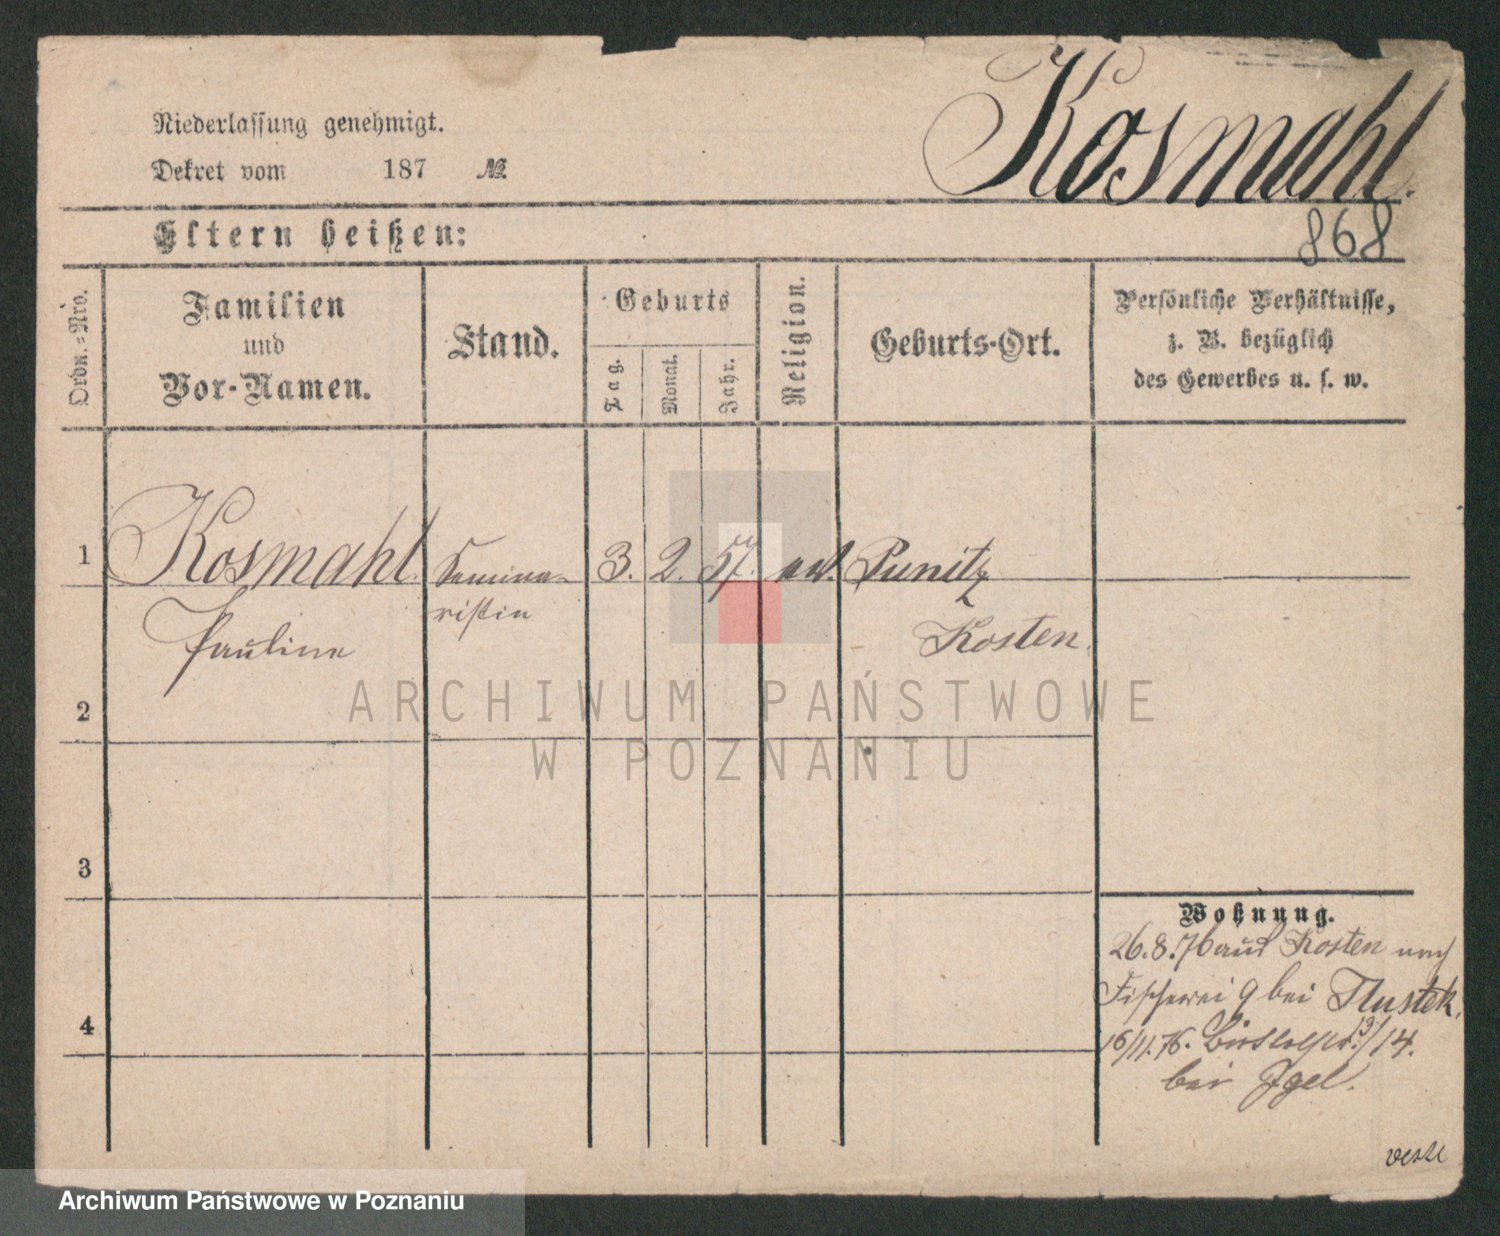 Kosmahl.
Niederlassung genehmigt.
Dekret vom 187 №
868
Eltern heißen:
Ordn.-Nro.
Familien
und
Vor-Namen.
Stand.
Geburts
Tag.
Monat.
Jahr.
Religion.
Geburts-Ort.
Persönliche Verhältnisse,
z. B. bezüglich
des Gewerbes u. s. w.
1 Kosmahl Semina- 3. 2. 57. ev. Punitz
Pauline ristin Kosten
2
3
4
Wohnung.
26.8.76 aus Kosten nach
Fischerei 9 bei Tlustek.
16/11.76. 13/14.
bei Igel.
ARCHIWUM PAŃSTWOWE
W POZNANIU
Archiwum Państwowe w Poznaniu